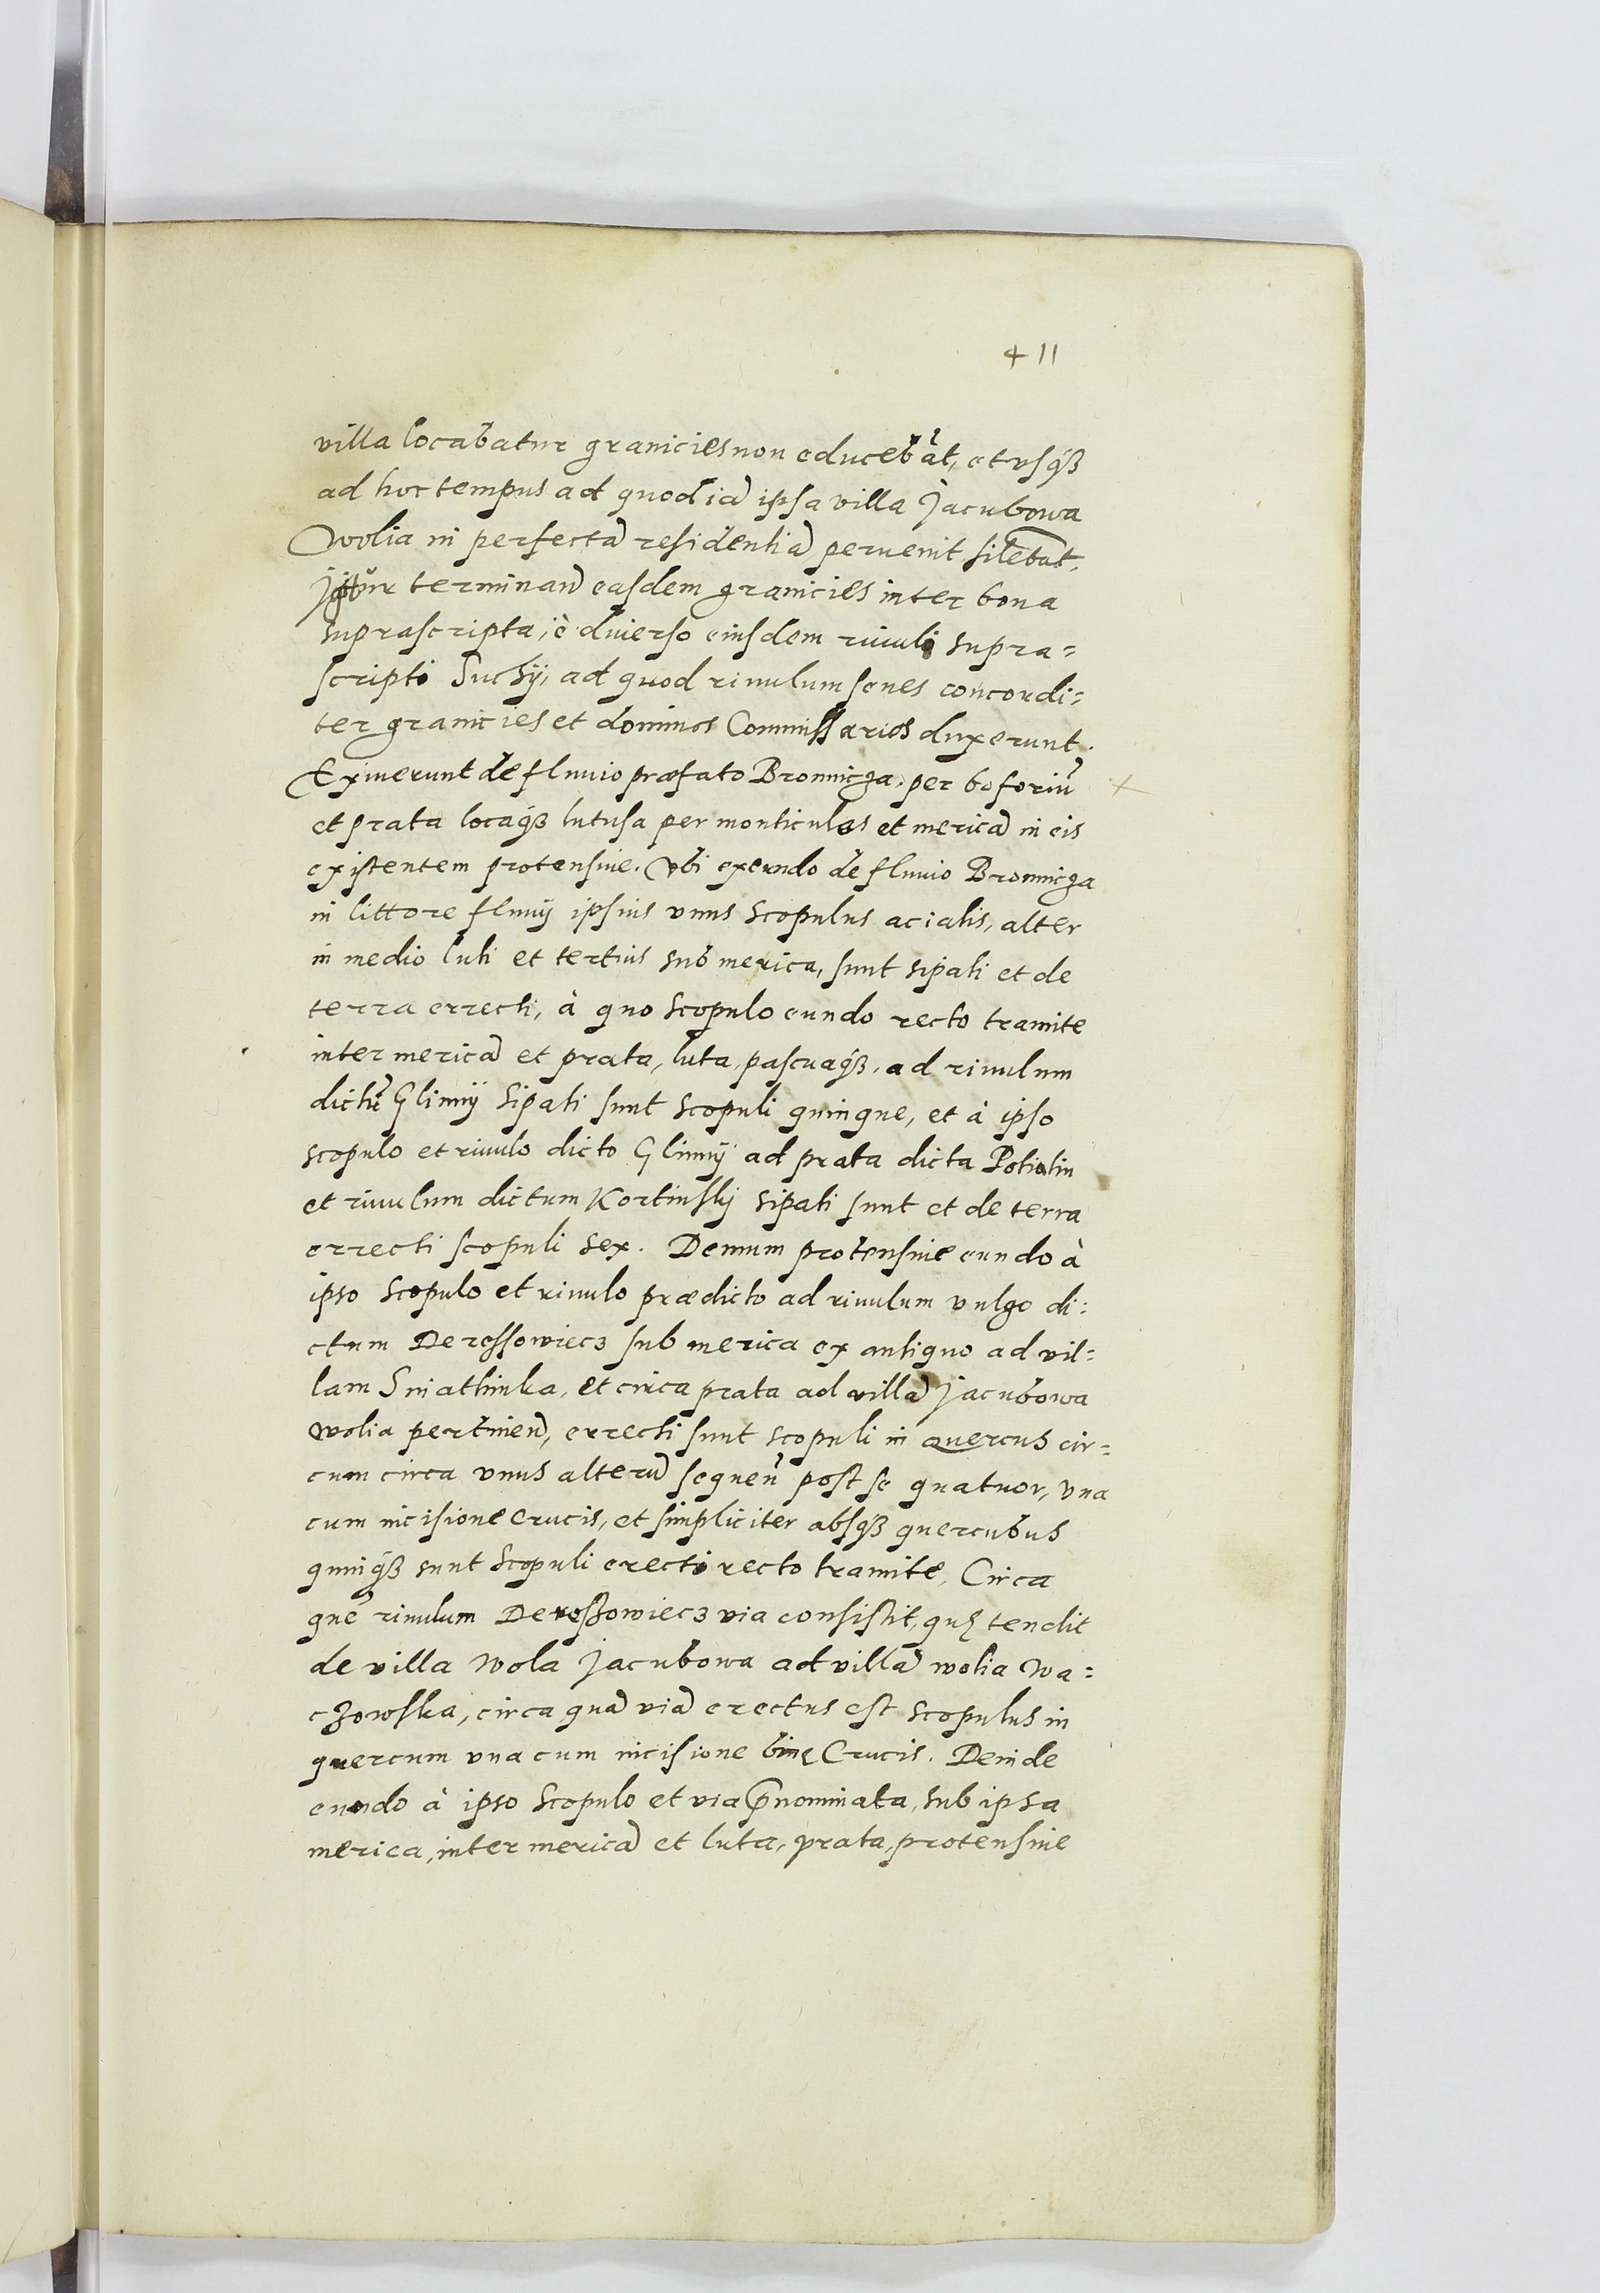 411
villa locabatur granicies non educebāt, et usq́ꝫ
ad hoc tempus ad quod iā ipsa villa Jacubowa
wolia in perfectā residentiā pervenit silebāt.
Igitur terminand easdem granicies inter bona
suprascripta, è diverso eiusdem rivuli supra=
scripti Suchÿ, ad quod rivulum senes concordi=
ter granicies et dominos Commissarios duxerunt.
Exiverunt de fluvio præfato Bronnicza, per boforiū
et prata locaq́ꝫ lutusa per monticulos et mericā in eis
existentem protensive. Ubi exeundo de fluvio Bronnicza
in littore fluvij ipsius unus scopulus acialis, alter
in medio luti et tertius sub merica, sunt sipati et de
terra errecti, à quo scopulo eundo recto tramite
inter mericā et prata, luta, pascuaq́ꝫ, ad rivulum
dictū Glinnÿ sipati sunt scopuli quinque, et à ipso
scopulo et rivulo dicto Glinnÿ ad prata dicta Potiatin
et rivulum dictum Kortinskij sipati sunt et de terra
errecti scopuli sex. Demum protensive eundo à
ipso scopulo et rivulo prædicto ad rivulum vulgo di=
ctum Deressowiecz sub merica ex antiquo ad vil=
lam Sniathinka, et circa prata ad villā Jacubowa
wolia pertinen̄, errecti sunt scopuli in quercus cir=
cum circa unus alterū sequen̄ post se quatuor, una
cum incisione crucis, et simpliciter absq́ꝫ quercubus
quinq́ꝫ sunt scopuli erecti recto tramite, Circa
quē rivulum Deroszowiecz via consistit, quę tendit
de villa Wola Jacubowa ad villā wolia Wa=
czowska, circa quā viā erectus est scopulus in
quercum una cum incisione binę Crucis. Deinde
eundo à ipso scopulo et via p̄nominata, sub ipsa
merica, inter mericā et luta, prata, protensive